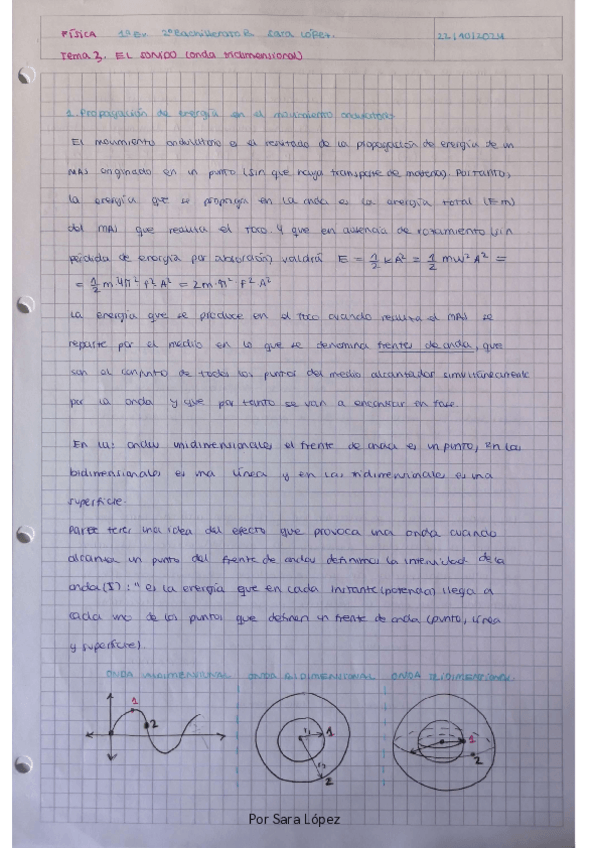 FÍSICA 1ª Ev. 2º Bachillerato B Sara López. 22/10/2024
Tema 3. EL SONIDO (onda tridimensional)
1. Propagación de energía en el movimiento ondulatorio
El movimiento ondulatorio es el resultado de la propagación de energía de un
MAS originado en un punto (sin que haya transporte de materia). Por tanto,
la energía que se propaga en la onda es la energía total (Em)
del MAS que realiza el foco. Y que en ausencia de rozamiento (sin
pérdida de energía por absorción) valdrá E = 1/2 kA² = 1/2 mω² A² =
= 1/2 m 4π² f² A² = 2m·π² f² A²
La energía que se produce en el foco cuando realiza el MAS se
reparte por el medio en lo que se denomina frentes de onda, que
son al conjunto de todos los puntos del medio alcanzados simultáneamente
por la onda y que por tanto se van a encontrar en fase.
En las ondas unidimensionales el frente de onda es un punto, en las
bidimensionales es una línea y en las tridimensionales es una
superficie.
Para tener una idea del efecto que provoca una onda cuando
alcanza un punto del frente de ondas definimos la intensidad de la
onda (I): "es la energía que en cada instante (potencia) llega a
cada uno de los puntos que definen un frente de onda (punto, línea
y superficie).
ONDA UNIDIMENSIONAL ONDA BIDIMENSIONAL ONDA TRIDIMENSIONAL
1 2
r₁ 1 r₂ 2
1 2
Por Sara López